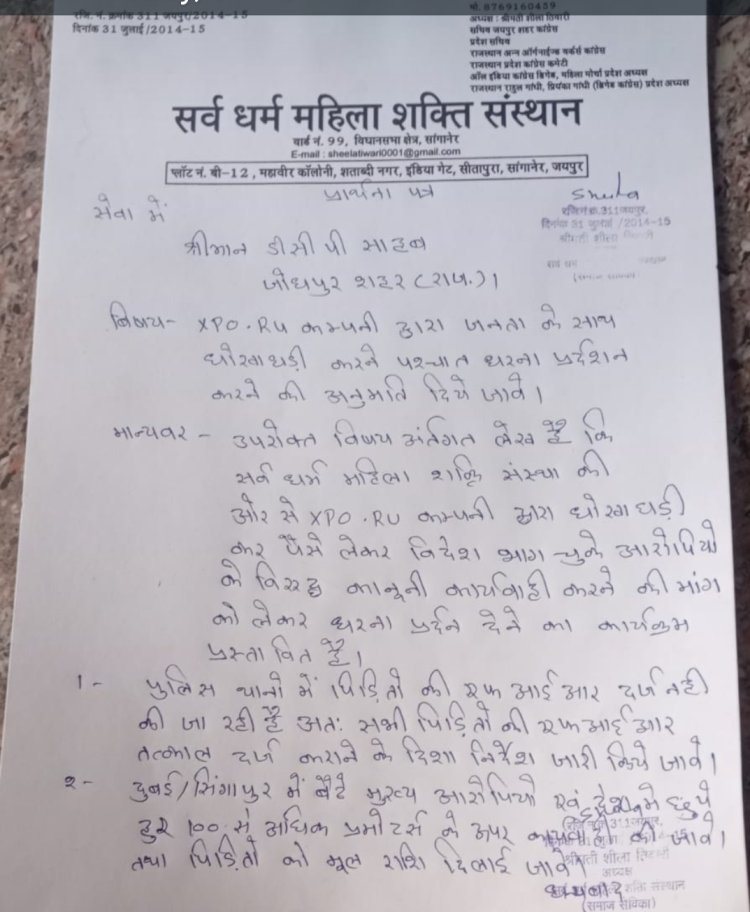 रजि. नं. क्रमांक 311 जयपुर/2014-15
दिनांक 31 जुलाई /2014-15
मो. 8769160459
अध्यक्ष : श्रीमती शीला तिवारी
सचिव जयपुर शहर कांग्रेस
प्रदेश सचिव
राजस्थान अन्न ऑर्गनाईज्ड वर्कर्स कांग्रेस
राजस्थान प्रदेश कांग्रेस कमेटी
ऑल इंडिया कांग्रेस ब्रिगेड, महिला मोर्चा प्रदेश अध्यक्ष
राजस्थान राहुल गांधी, प्रियंका गांधी (ब्रिगेड कांग्रेस) प्रदेश अध्यक्ष
सर्व धर्म महिला शक्ति संस्थान
वार्ड नं. 99, विधानसभा क्षेत्र, सांगानेर
E-mail : sheelatiwari0001@gmail.com
प्लॉट नं. बी-12, महावीर कॉलोनी, शताब्दी नगर, इंडिया गेट, सीतापुरा, सांगानेर, जयपुर
प्रार्थना पत्र
सेवा में
रजि क्रं.311जयपुर,
दिनांक 31 जुलाई /2014-15
श्रीमती शीला तिवारी
श्रीमान डीसीपी साहब
जोधपुर शहर (राज.)।
विषय- XPO.RU कम्पनी द्वारा जनता के साथ
धोखाधड़ी करने पश्चात धरना प्रर्दशन
करने की अनुमति दिये जावे।
मान्यवर - उपरोक्त विषय अंर्तगत लेख है कि
सर्व धर्म महिला शक्ति संस्था की
ओर से XPO.RU कम्पनी द्वारा धोखाधड़ी
कर पैसे लेकर विदेश भाग चुके आरोपियो
के विरुद्ध कानूनी कार्यवाही करने की मांग
को लेकर धरना प्रर्दन देने का कार्यक्रम
प्रस्तावित है।
1- पुलिस थानो में पिडितो की एफ आई आर दर्ज नही
की जा रही है अतः सभी पिडितो की एफ आई आर
तत्काल दर्ज कराने के दिशा निर्देश जारी किये जावे।
२- दुबई/सिंगापुर में बैठे मुख्य आरोपियो एवं देश में छुपे
हुए 100 से अधिक प्रमोटर्स के उपर कार्यवाही की जावे।
तथा पिडितो को मूल राशि दिलाई जावे।
श्रीमती शीला तिवारी
अध्यक्ष
धन्यवाद
शक्ति संस्थान
(समाज सेविका)